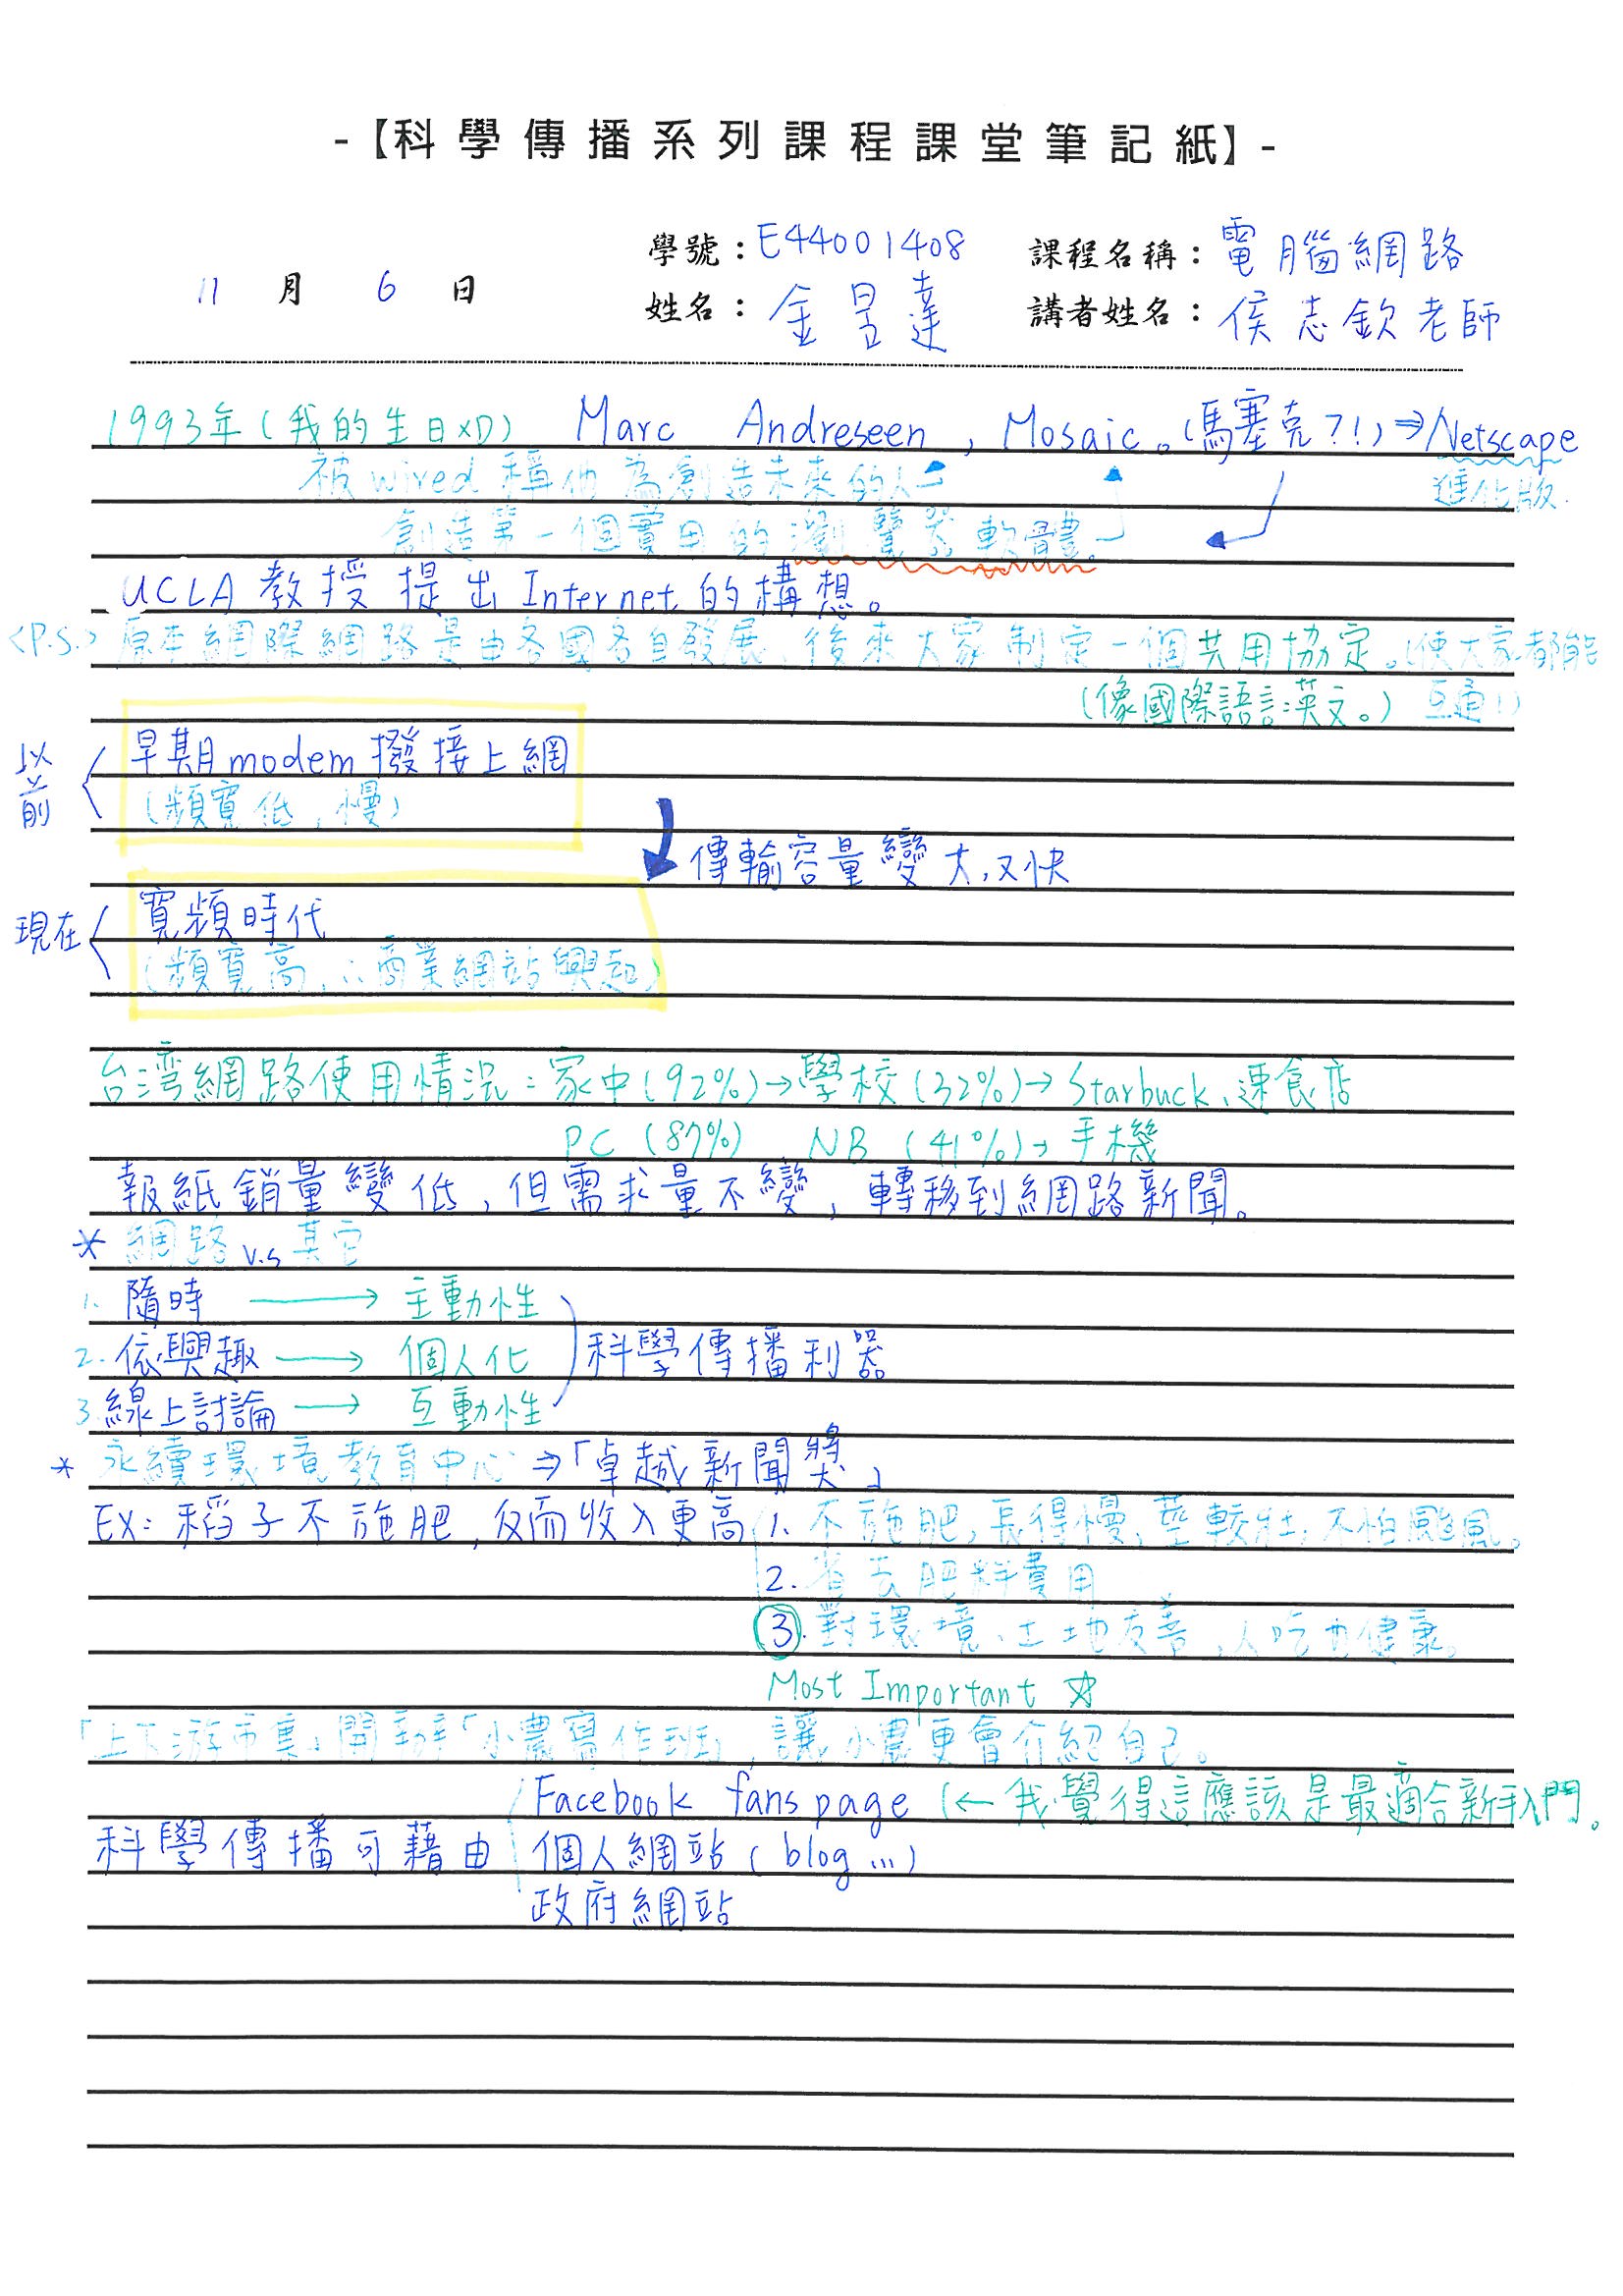 -【科學傳播系列課程課堂筆記紙】-
學號：E44001408 課程名稱：電腦網路
11 月 6 日 姓名：金昱達 講者姓名：侯志欽老師
1993年(我的生日XD) Marc Andreseen, Mosaic。(馬塞克?!)⇒Netscape
被wired稱他為創造未來的人 進化版.
創造第一個實用的瀏覽器軟體。
UCLA教授提出Internet的構想。
<P.S.> 原本網際網路是由各國各自發展、後來大家制定一個共用協定。(使大家都能
(像國際語言:英文。) 互通!)
以前 早期modem撥接上網
(頻寬低,慢)
傳輸容量變大,又快
現在 寬頻時代
(頻寬高,∴商業網站興起)
台湾網路使用情況:家中(92%)→學校(32%)→Starbuck、速食店
PC(87%) NB(41%)→手機
報紙銷量變低,但需求量不變,轉移到網路新聞。
* 網路v.s其它
1. 隨時 → 主動性
2. 依興趣 → 個人化 科學傳播利器
3. 線上討論 → 互動性
* 永續環境教育中心⇒「卓越新聞獎」
EX:稻子不施肥,反而收入更高 1.不施肥,長得慢,莖較壯,不怕颱風。
2.省去肥料費用
③.對環境、土地友善,人吃也健康。
Most Important ☆
「上下游市集」開辦「小農寫作班」,讓小農更會介紹自己。
Facebook fans page (←我覺得這應該是最適合新手入門。
科學傳播可藉由 個人網站(blog…)
政府網站